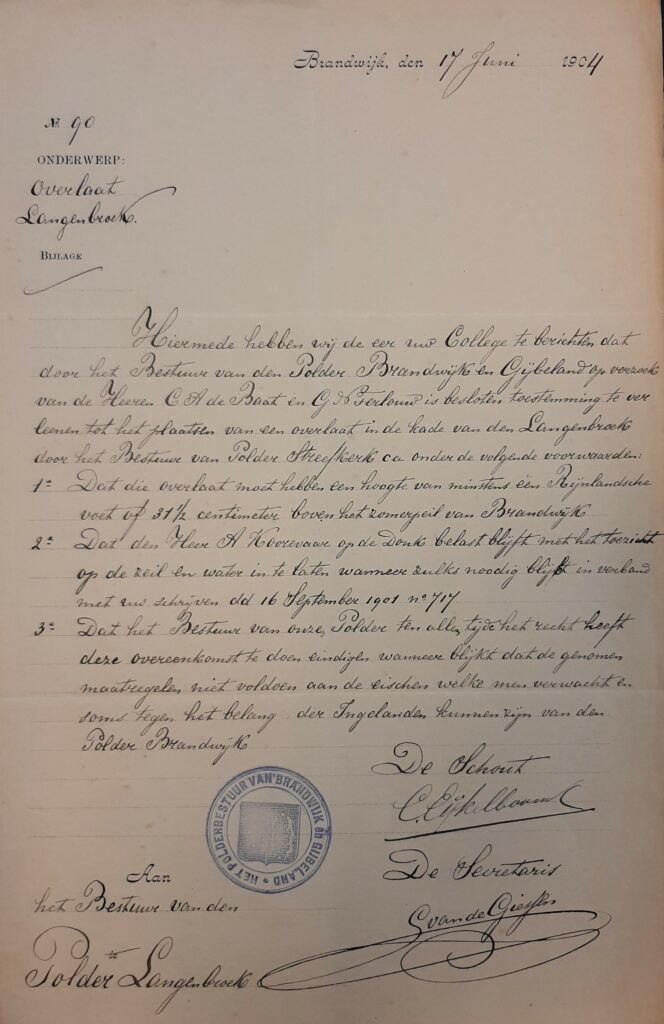 Brandwijk, den 17 Juni 1904
No 90
ONDERWERP:
Overlaat
Langenbroek.
BIJLAGE
Hiermede hebben wij de eer uw College te berichten dat
door het Bestuur van den Polder Brandwijk en Gijbeland op verzoek
van de Heeren C A de Baat en G Terlouw is besloten toestemming te ver
leenen tot het plaatsen van een overlaat in de kade van den Langenbroek
door het Bestuur van Polder Streefkerk ca onder de volgende voorwaarden:
1e Dat die overlaat moet hebben een hoogte van minstens één Rijnlandsche
voet of 31½ centimeter boven het zomerpeil van Brandwijk
2e Dat den Heer A Koorevaar op de Donk belast blijft met het toezicht
op de zeil en water in te laten wanneer zulks noodig blijkt in verband
met uw schrijven dd 16 September 1901 no 717
3e Dat het Bestuur van onze Polder ten alle tijde het recht heeft
deze overeenkomst te doen eindigen wanneer blijkt dat de genomen
maatregelen niet voldoen aan de eischen welke men verwacht en
soms tegen het belang der Ingelanden kunnen zijn van den
Polder Brandwijk
De Schout
C. Eijkelboom
HET POLDERBESTUUR VAN BRANDWIJK en GIJBELAND
De Secretaris
G van de Giessen
Aan
het Bestuur van den
te
Polder Langenbroek